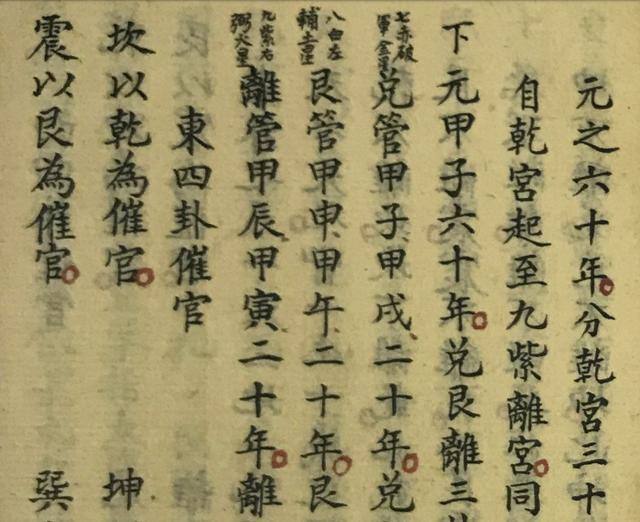 元之六十年分乾宮三十
自乾宮起至九紫離宮同
下元甲子六十年兌艮離三
七赤破軍金星兌管甲子甲戌二十年兌
八白左輔土星艮管甲申甲午二十年艮
九紫右弼火星離管甲辰甲寅二十年離
東四卦催官
坎以乾為催官 坤
震以艮為催官 巽